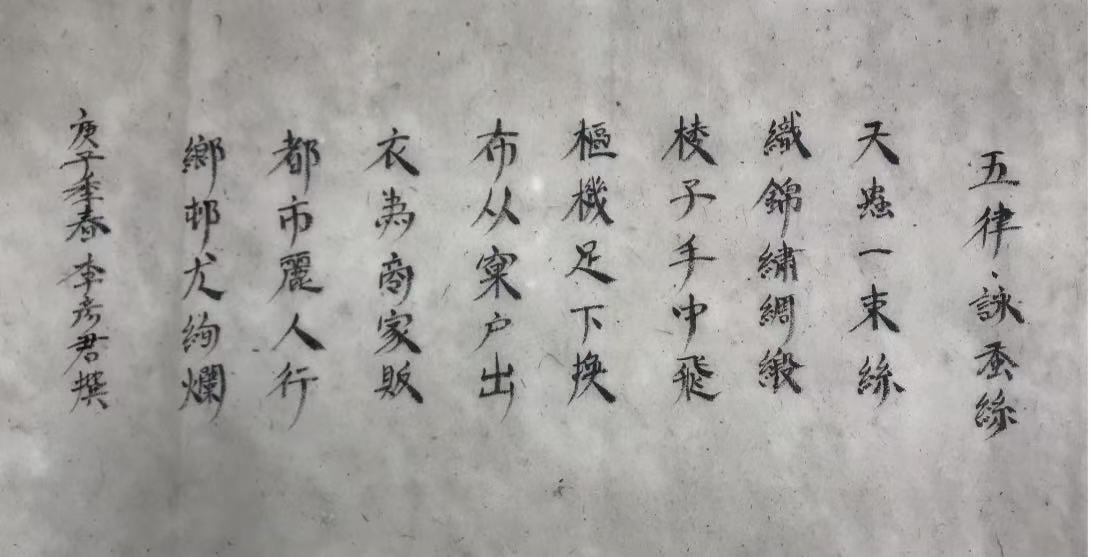 五律、詠蚕絲
天蟲一束絲
織錦繡綢緞
棱子手中飛
樞機足下換
布从窠户出
衣為商家販
都市麗人行
鄉邨尤絢爛
庚子季春李彦君撰